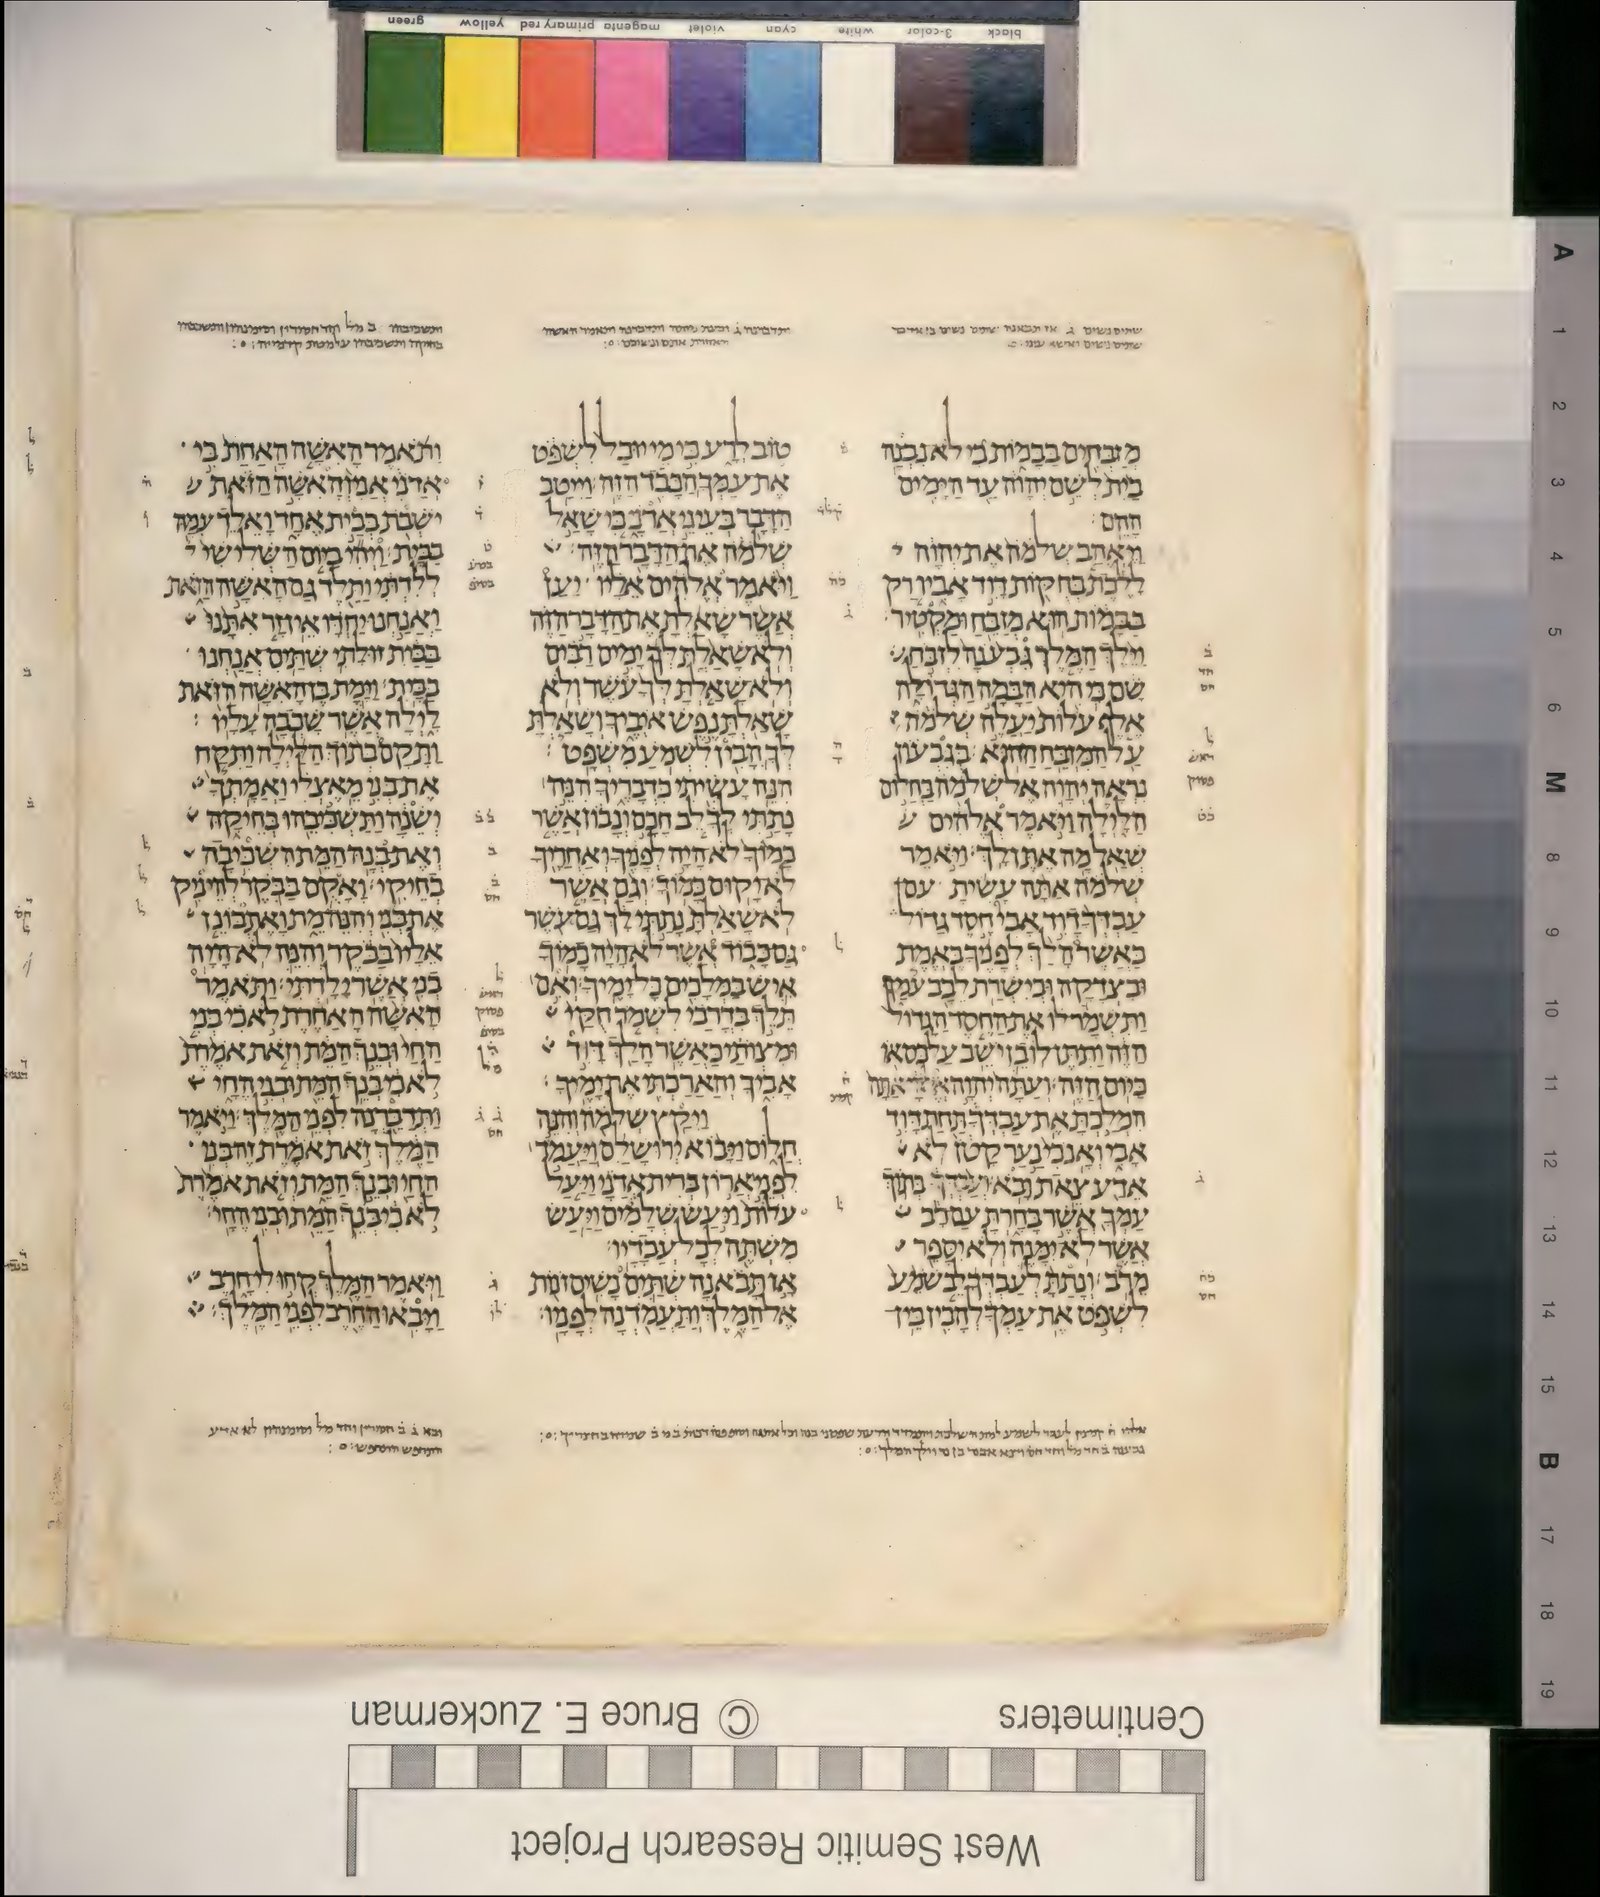 green
yellow
primary red
magenta
violet
cyan
white
3-color
black
שתים נשים ג אז תבאנה שתים נשים
מזבחים בבמות כי לא נבנה
בית לשם יהוה עד הימים
ההם
ויאהב שלמה את יהוה
ללכת בחקות דוד אביו רק
בבמות הוא מזבח ומקטיר
וילך המלך גבענה לזבח
שם כי היא הבמה הגדולה
אלף עלות יעלה שלמה
על המזבח ההוא בגבעון
נראה יהוה אל שלמה בחלום
הלילה ויאמר אלהים
שאל מה אתן לך ויאמר
שלמה אתה עשית עם
עבדך דוד אבי חסד גדול
כאשר הלך לפניך באמת
ובצדקה ובישרת לבב עמך
ותשמר לו את החסד הגדול
הזה ותתן לו בן ישב על כסאו
כיום הזה ועתה יהוה אלהי אתה
המלכת את עבדך תחת דוד
אבי ואנכי נער קטן לא
אדע צאת ובא ועבדך בתוך
עמך אשר בחרת עם רב
אשר לא ימנה ולא יספר
מרב ונתת לעבדך לב שמע
לשפט את עמך להבין בין
טוב לרע כי מי יוכל לשפט
את עמך הכבד הזה וייטב
הדבר בעיני אדני כי שאל
שלמה את הדבר הזה
ויאמר אלהים אליו יען
אשר שאלת את הדבר הזה
ולא שאלת לך ימים רבים
ולא שאלת לך עשר ולא
שאלת נפש איביך ושאלת
לך הבין לשמע משפט
הנה עשיתי כדבריך הנה
נתתי לך לב חכם ונבון אשר
כמוך לא היה לפניך ואחריך
לא יקום כמוך וגם אשר
לא שאלת נתתי לך גם עשר
גם כבוד אשר לא היה כמוך
איש במלכים כל ימיך ואם
תלך בדרכי לשמר חקי
ומצותי כאשר הלך דויד
אביך והארכתי את ימיך
ויקץ שלמה והנה
חלום ויבוא ירושלם ויעמד
לפני ארון ברית אדני ויעל
עלות ויעש שלמים ויעש
משתה לכל עבדיו
אז תבאנה שתים נשים זנות
אל המלך ותעמדנה לפניו
ותאמר האשה האחת בי
אדני אני והאשה הזאת
ישבת בבית אחד ואלד עמה
בבית ויהי ביום השלישי
ללדתי ותלד גם האשה הזאת
ואנחנו יחדו אין זר אתנו
בבית זולתי שתים אנחנו
בבית וימת בן האשה הזאת
לילה אשר שכבה עליו
ותקם בתוך הלילה ותקח
את בני מאצלי ואמתך
ישנה ותשכיבהו בחיקה
ואת בנה המת השכיבה
בחיקי ואקם בבקר להיניק
את בני והנה מת ואתבונן
אליו בבקר והנה לא היה
בני אשר ילדתי ותאמר
האשה האחרת לא כי בני
החי ובנך המת וזאת אמרת
לא כי בנך המת ובני החי
ותדברנה לפני המלך ויאמר
המלך זאת אמרת זה בני
החי ובנך המת וזאת אמרת
לא כי בנך המת ובני החי
ויאמר המלך קחו לי חרב
ויבאו החרב לפני המלך
A
1
2
3
4
5
6
M
8
9
10
11
12
13
14
15
B
17
18
19
Centimeters
© Bruce E. Zuckerman
West Semitic Research Project